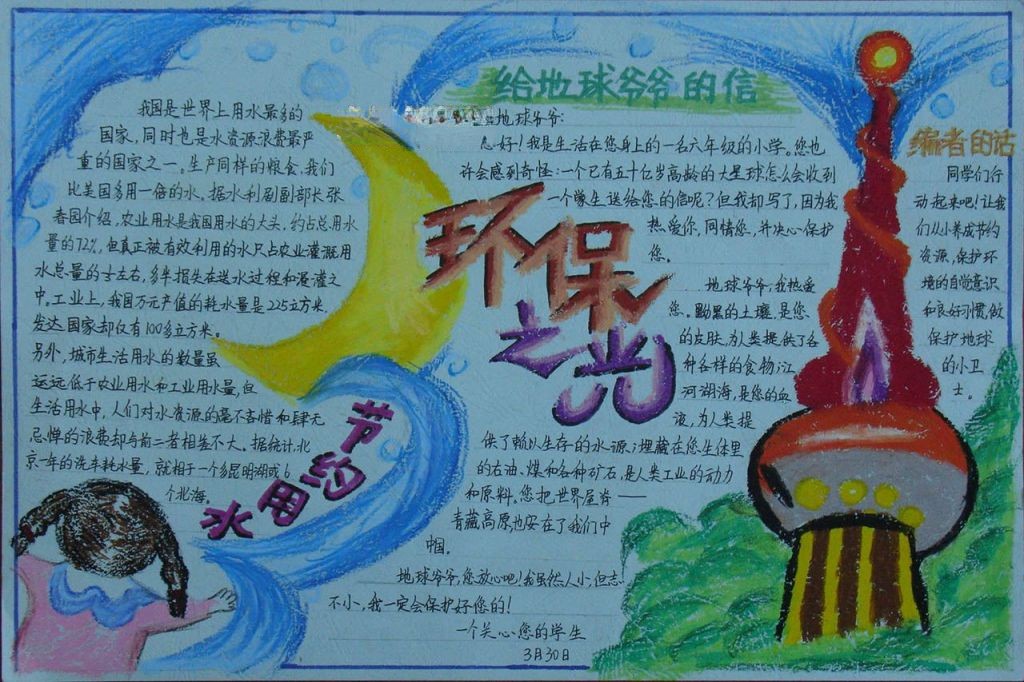 我国是世界上用水最多的
国家,同时也是水资源浪费最严
重的国家之一。生产同样的粮食,我们
比美国多用一倍的水。据水利副副部长张
春园介绍,农业用水是我国用水的大头,约占总用水
量的72%,但真正被有效利用的水只占农业灌溉用
水总量的 左右,多半损失在送水过程和漫灌之
中。工业上,我国万元产值的耗水量是225立方米,
发达国家却仅有100多立方米。
另外,城市生活用水的数量虽
远远低于农业用水和工业用水量,但
生活用水中,人们对水资源的毫不吝惜和肆无
忌惮的浪费却与前二者相差不大。据统计,北
京一年的洗车耗水量,就相于一个多昆明湖或6
个北海。
节约用水
环保
之光
给地球爷爷的信
地球爷爷:
您好!我是生活在您身上的一名六年级的小学。您也
许会感到奇怪:一个已有五十亿岁高龄的大星球怎么会收到
一个学生送给您的信呢?但我却写了,因为我
热爱你,同情您,并决心保护
您。
地球爷爷,我热爱
您。黝黑的土壤,是您
的皮肤,为人类提供了各
种各样的食物;江
河湖海,是您的血
液,为人类提
供了赖以生存的水源;埋藏在您生体里
的石油、煤和各种矿石,是人类工业的动力
和原料。您把世界屋脊——
青藏高原,也安在了我们中
国。
地球爷爷,您放心吧!我虽然人小,但志
不小,我一定会保护好您的!
一个关心您的学生
3月30日
编者的话
同学们行
动起来吧!让我
们从小养成节约
资源,保护环
境的自觉意识
和良好习惯,做
保护地球
的小卫
士。